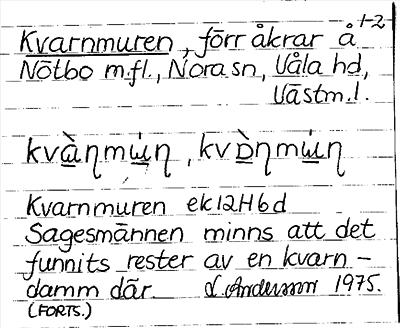 1-2
Kvarnmuren, förr åkrar å
Nötbo m.fl., Nora sn, Våla hd,
Västm.l.
kvàηmẁη, kvɒ̀ηmẁη
Kvarnmuren ek12H6d
Sagesmännen minns att det
funnits rester av en kvarn-
damm där. L. Andersson 1975.
(FORTS.)